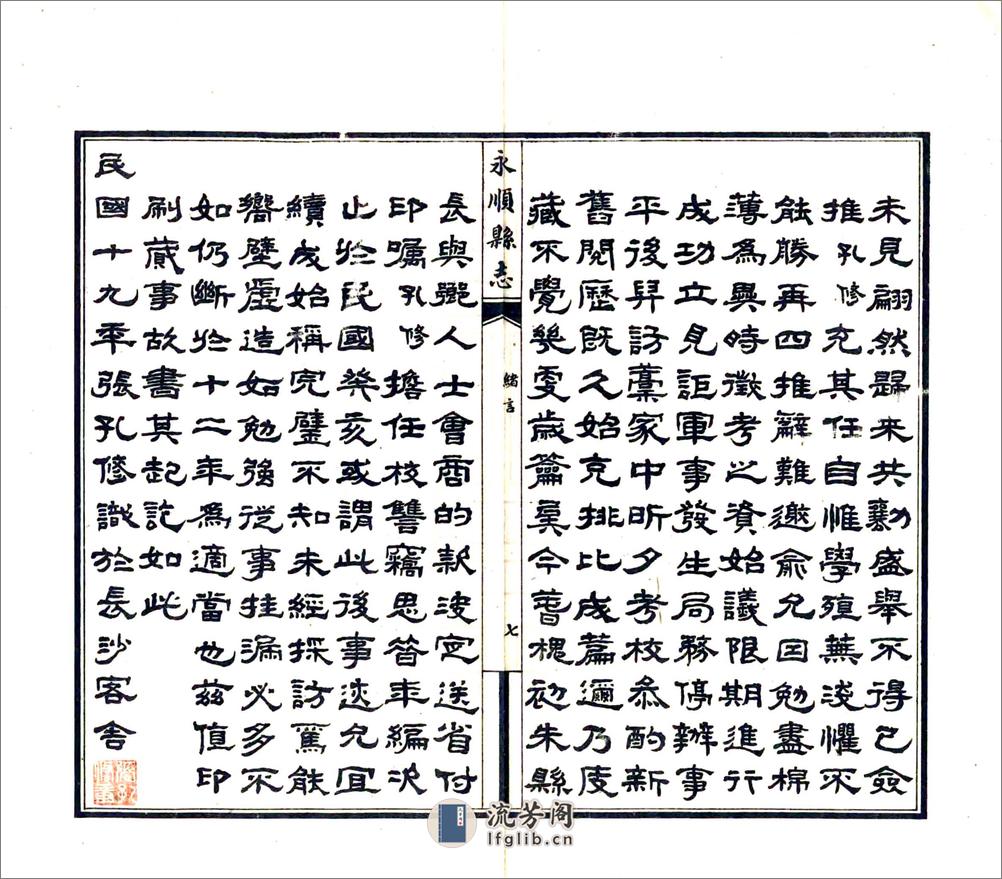 未見翩然歸來共勷盛舉不得已僉
推孔修充其任自惟學殖蕪淺懼不
能勝再四推辭難邀俞允因勉盡棉
薄為異時徵考之資始議限期進行
成功立見詎軍事發生局務停辦事
平後昇訪藁家中昕夕考校叅酌新
舊閱歷既久始克排比成篇邇乃庋
藏不覺幾更歲籥矣今暮槐初朱縣
永順縣志
緒言
七
長與邑人士會商的款決定送省付
印囑孔修擔任校讐竊思咨年編次
止於民國癸亥或謂此後事迹允宜
續成始稱完璧不知未經採訪罵能
嚮壁虛造如勉強從事挂漏必多不
如仍斷於十二年為適當也茲值印
刷蕆事故書其起訖如此
民國十九年張孔修識於長沙客舍
流芳阁
lfglib.cn